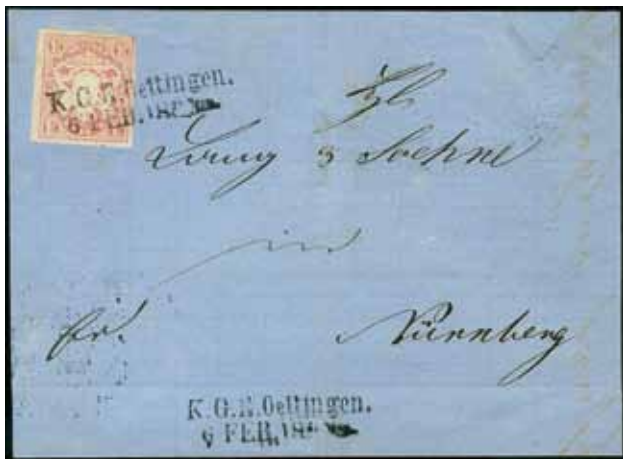 K.G.N. Oettingen.
6 FEB. 18
& Soehne
in
fr.
Nürnberg
K.G.N. Oettingen.
6 FEB. 18